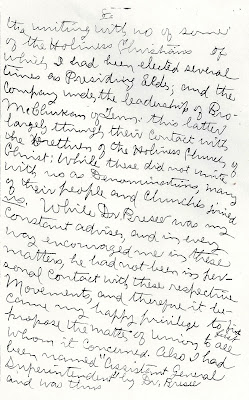 the uniting with us of some
of the Holiness Christians of
which I had been elected several
times as Presiding Elder; and the
Company under the leadership of Bro-
McClurkan of Tenn. this latter
largely through their contact with
the Brethren of the Holiness Church of
Christ: While these did not unite
with us as Denominations, many
of their people and Churches joined
us. While Dr. Bresee was my
constant adviser, and in every
way encouraged me in these
matters, he had not been in per-
sonal contact with these respective
Movements, and therefore it be-
came my happy privilege to first
propose the matter of Union to all
whom it concerned. Also I had
been named "Assistant General
Superintendent" by Dr. Bresee
and was thus